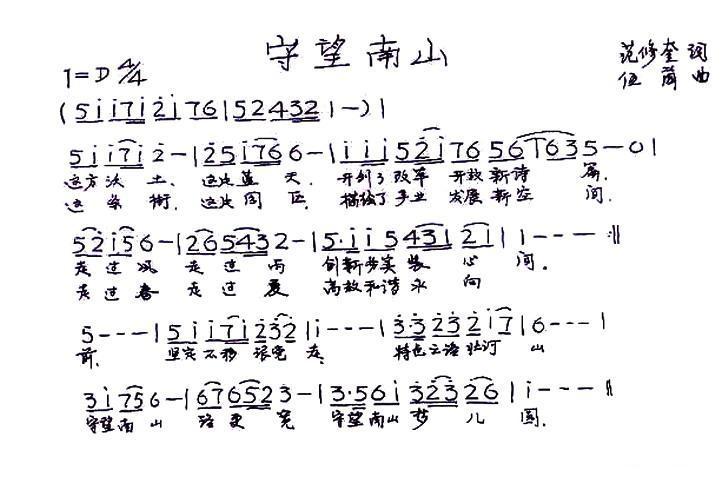 守望南山
范修奎 词
1=D 4/4
伍 曲
(5 i i 7 i 2 i 7 6 | 5 2 4 3 2 1 -) |
5 i i 7 i 2 - | 2 5 i 7 6 6 - | i i i 5 2 i 7 6 5 6 i 6 3 5 - 0 |
这方沃土, 这片蓝天, 开创了改革开放新诗篇,
这条街, 这片园区, 描绘了事业发展新空间,
5 2 i 5 6 - | 2 6 5 4 3 2 - | 5 · i i 5 4 3 1 2 1 | 1 - - - :||
走过风走过雨 创新务实 心间。
走过春走过夏 高效和谐永向
5 - - - | 5 i i 7 i 2 3 2 | i - - - | 3 · 3 2 3 2 i 7 | 6 - - - |
前, 坚定不移跟党走, 特色 山
3 i 7 5 6 - | 6 7 6 5 2 3 - | 3 · 5 6 i 3 2 3 2 6 | i - - - ||
守望南山 路更宽 守望南山梦儿圆.